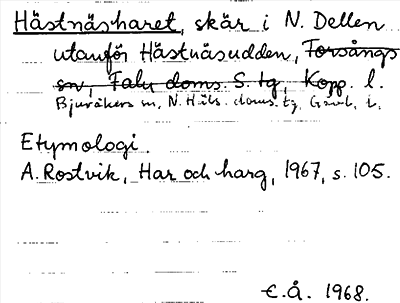 Hästnäsharet, skär i N. Dellen
utanför Hästnäsudden, Torsångs
sn, Falu doms. S. tg, Kopp. l.
Bjuråkers sn, N. Häls. doms. tg, Gävl. l.
Etymologi.
A. Rostvik, Har och harg, 1967, s. 105.
E.Å. 1968.